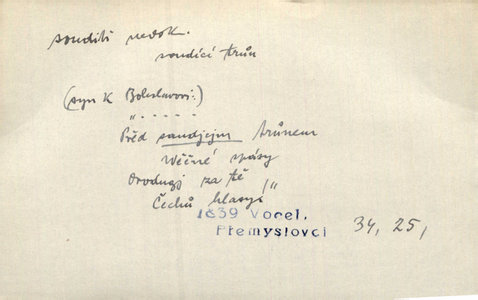 souditi nedok.
soudící trůn
(syn k Boleslavovi:)
„ . . . . .
Před saudjcjm trůnem
Wěčné spásy
Orodugj za tě
Čechů hlasy."
1839 Vocel,
Přemyslovci
34, 25,